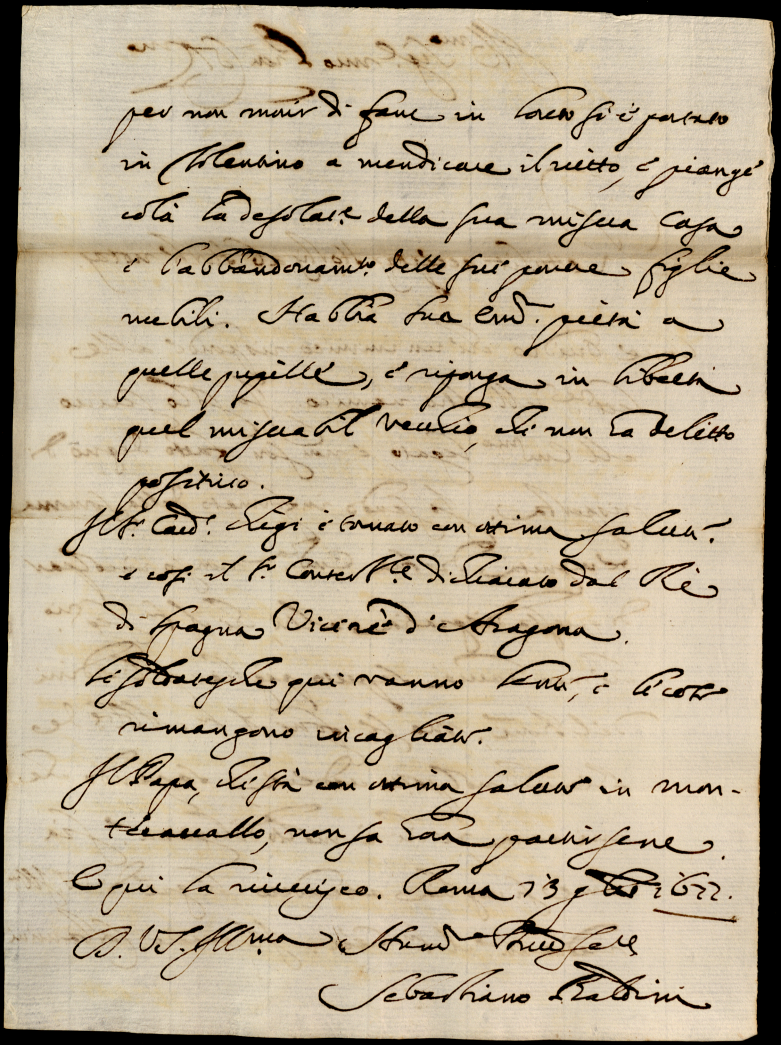 per non morir di fame in Loreto si è portato
in Tolentino a mendicare il vitto, e piange
colà la desolat.e della sua misera Casa
e l'abbandonam.to delle sue povere figlie
nubili. Habbia sua Em.a pietà a
quelle pupille, e riponga in libertà
quel miserabil vecchio, che non ha delitto
positivo.
Il S.r Card.l Chigi è tornato con ottima salute.
e così il S.r Contest.le dichiarato dal Rè
di Spagna Vicerè d'Aragona.
Le soldatesche qui vanno lente, e le cose
rimangono incagliate.
Il Papa, che stà con ottima salute in mon-
tecavallo, non sa hora partirsene.
E qui la riverisco. Roma 13 9bre 1677.
D. V.S. Ill.ma
Sebastiano Baldini